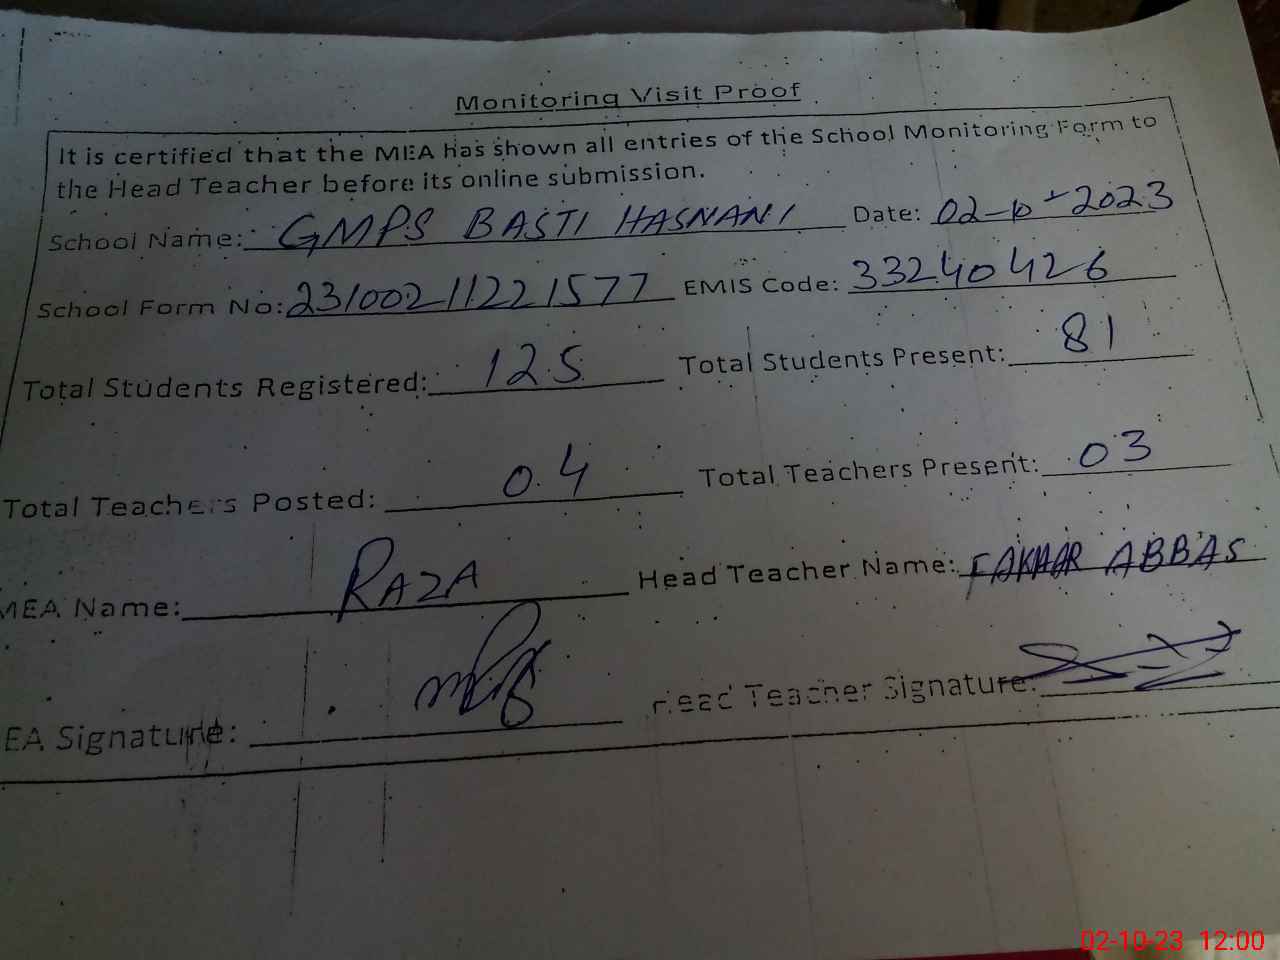 Monitoring Visit Proof
It is certified that the MEA has shown all entries of the School Monitoring Form to
the Head Teacher before its online submission.
School Name: GMPS BASTI HASNANI Date: 02-10-2023
School Form No: 23100211221577 EMIS Code: 33240426
Total Students Registered: 125 Total Students Present: 81
Total Teachers Posted: 04 Total Teachers Present: 03
MEA Name: RAZA Head Teacher Name: FAKHAR ABBAS
EA Signature: Head Teacher Signature:
02-10-23 12:00